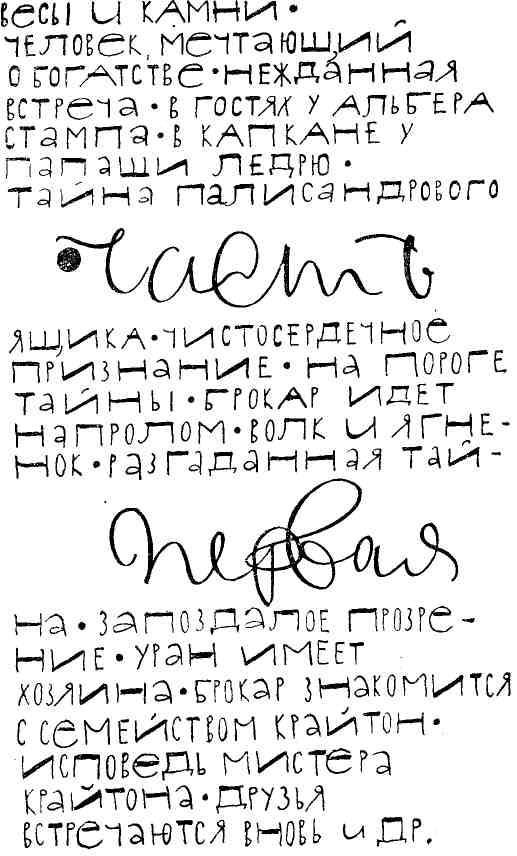 ВЕСЫ И КАМНИ •
ЧЕЛОВЕК, МЕЧТАЮЩИЙ
О БОГАТСТВЕ • НЕЖДАННАЯ
ВСТРЕЧА • В ГОСТЯХ У АЛЬБЕРА
СТАМПА • В КАПКАНЕ У
ПАПАШИ ЛЕДРЮ •
ТАЙНА ПАЛИСАНДРОВОГО
• Часть
ЯЩИКА • ЧИСТОСЕРДЕЧНОЕ
ПРИЗНАНИЕ • НА ПОРОГЕ
ТАЙНЫ • БРОКАР ИДЕТ
НАПРОЛОМ • ВОЛК И ЯГНЕ-
НОК • РАЗГАДАННАЯ ТАЙ-
первая
НА • ЗАПОЗДАЛОЕ ПРОЗРЕ-
НИЕ • УРАН ИМЕЕТ
ХОЗЯИНА • БРОКАР ЗНАКОМИТСЯ
С СЕМЕЙСТВОМ КРАЙТОН •
ИСПОВЕДЬ МИСТЕРА
КРАЙТОНА • ДРУЗЬЯ
ВСТРЕЧАЮТСЯ ВНОВЬ И ДР.